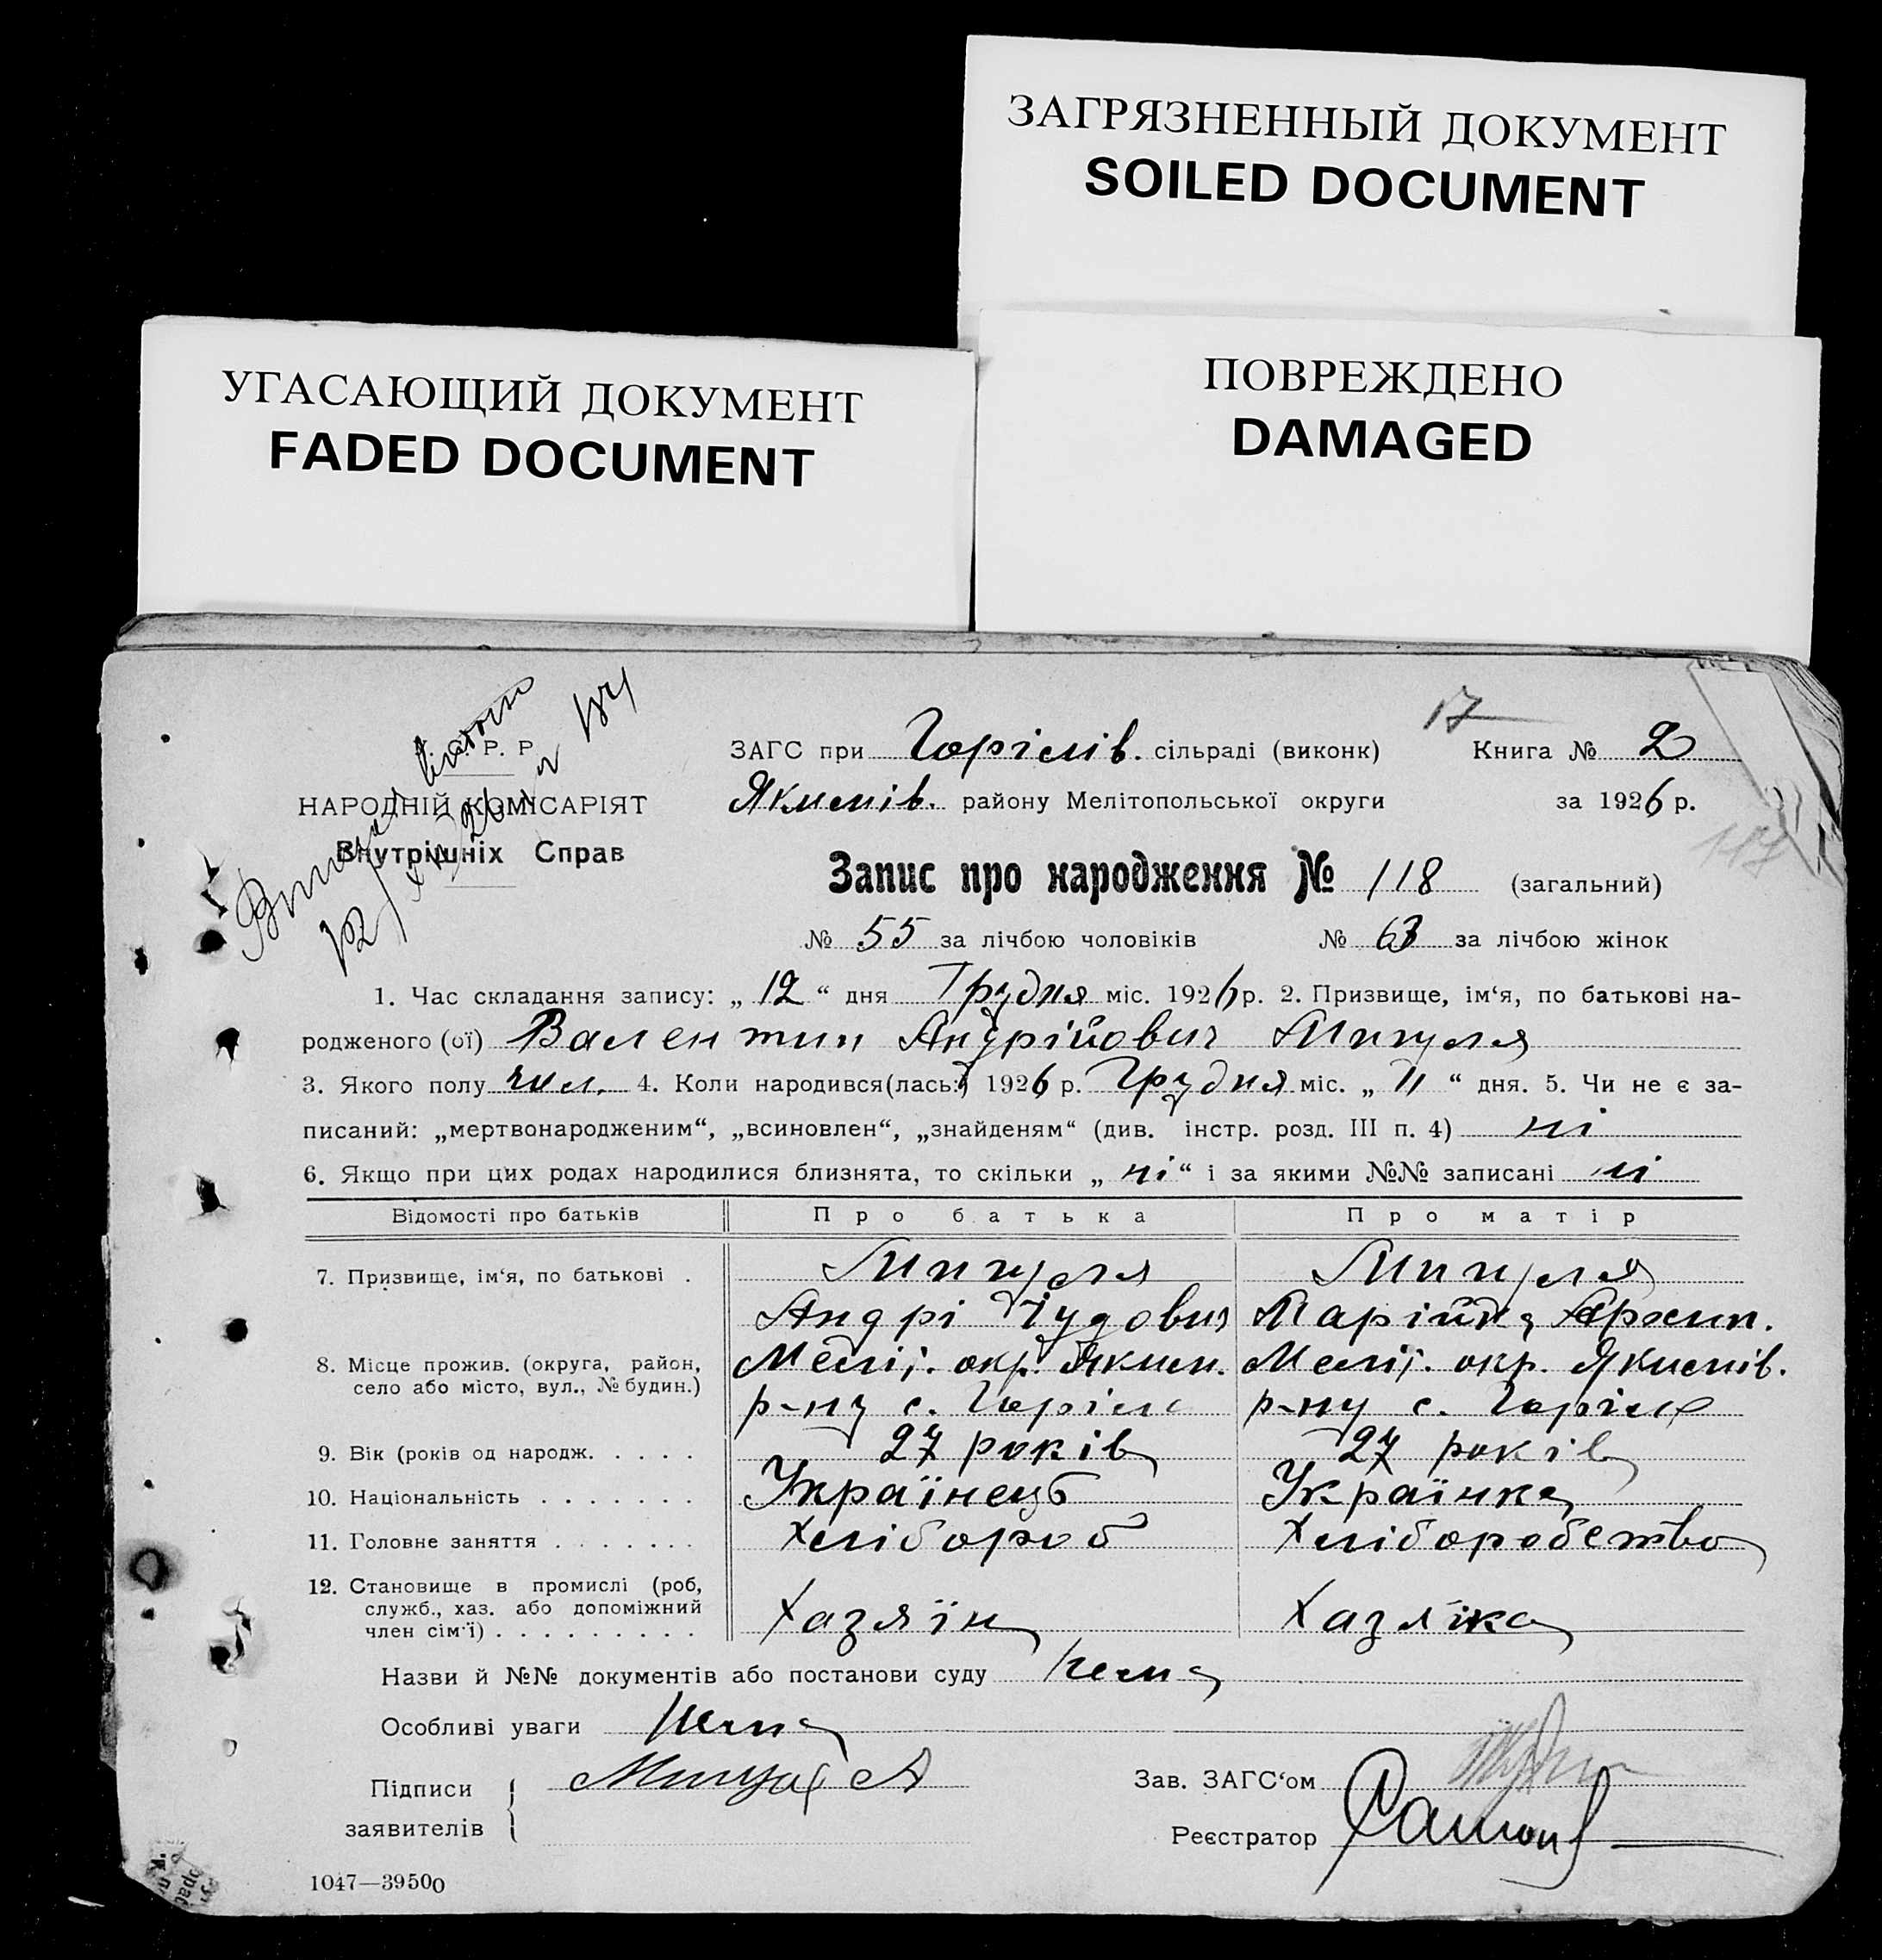 ЗАГРЯЗНЕННЫЙ ДОКУМЕНТ
SOILED DOCUMENT
УГАСАЮЩИЙ ДОКУМЕНТ
FADED DOCUMENT
ПОВРЕЖДЕНО
DAMAGED
17
Р. Р.
НАРОДНІЙ КОМІСАРІЯТ
Внутрішніх Справ
ЗАГС при Горілів. сільраді (виконк) Книга № 2
Якимів. району Мелітопольської округи за 1926 р.
117
Запис про народження № 118 (загальний)
№ 55 за лічбою чоловіків № 63 за лічбою жінок
1. Час складання запису: „12“ дня Грудня міс. 1926 р. 2. Призвище, ім‘я, по батькові на-
родженого (ої) Валентин Андрійович
3. Якого полу чол. 4. Коли народився(лась:) 1926 р. Грудня міс. „11“ дня. 5. Чи не є за-
писаний: „мертвонародженим“, „всиновлен“, „знайденям“ (див. інстр. розд. III п. 4) ні
6. Якщо при цих родах народилися близнята, то скільки „ні“ і за якими №№ записані ні
Відомості про батьків Про батька Про матір
7. Призвище, ім‘я, по батькові .
Андрі Марійка
8. Місце прожив. (округа, район, Меліт. окр. Яким. Меліт. окр. Якимів.
село або місто, вул., № будин.) р-ну с. р-ну с.
9. Вік (років од народж. . . . . 27 років 27 років
10. Національність . . . . . . . Українець Українка
11. Головне заняття . . . . . . . Хлібороб Хліборобство
12. Становище в промислі (роб,
служб., хаз. або допоміжний
член сім‘ї) . . . . . . . . . Хазяїн Хазяїка
Назви й №№ документів або постанови суду Нема
Особливі уваги Нема
Підписи
заявителів
Зав. ЗАГС‘ом
Реєстратор
1047—39500